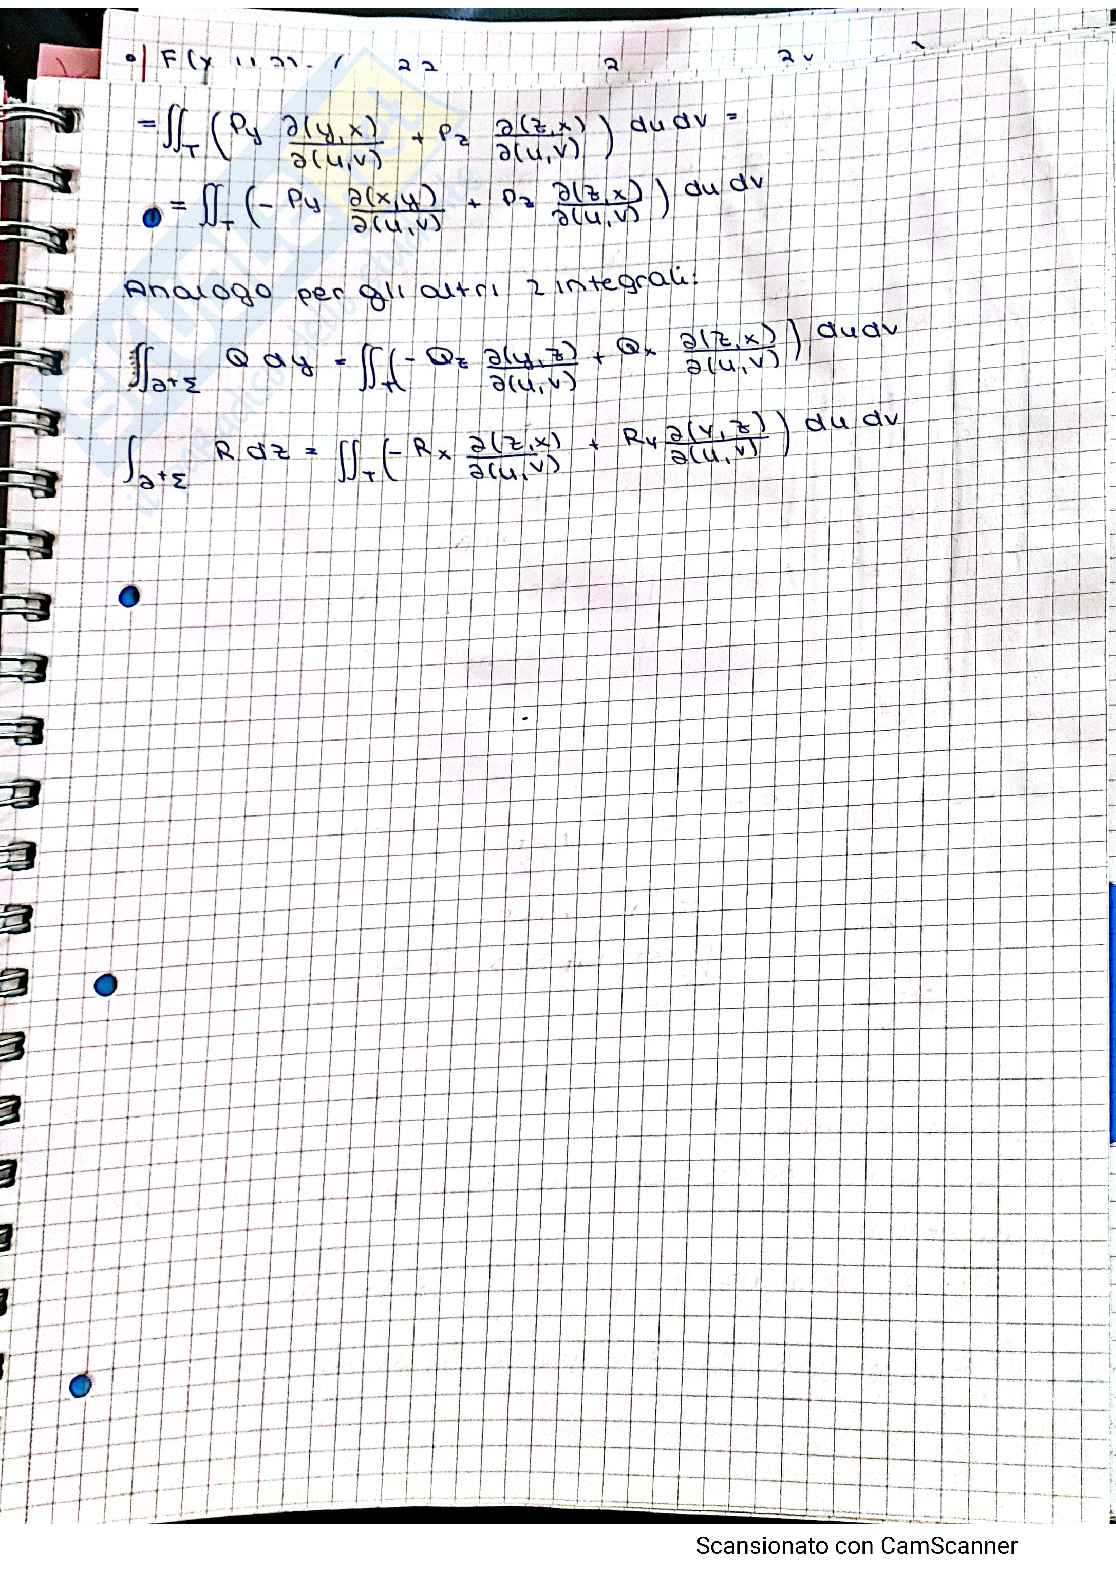 = ∬_T ( Py ∂(y,x)/∂(u,v) + Pz ∂(z,x)/∂(u,v) ) du dv =
= ∬_T (- Py ∂(x,y)/∂(u,v) + Pz ∂(z,x)/∂(u,v) ) du dv
Analogo per gli altri 2 integrali:
∬_∂+Σ Q dy = ∬_T (- Qz ∂(y,z)/∂(u,v) + Qx ∂(z,x)/∂(u,v) ) du dv
∫_∂+Σ R dz = ∬_T (- Rx ∂(z,x)/∂(u,v) + Ry ∂(y,z)/∂(u,v) ) du dv
Scansionato con CamScanner